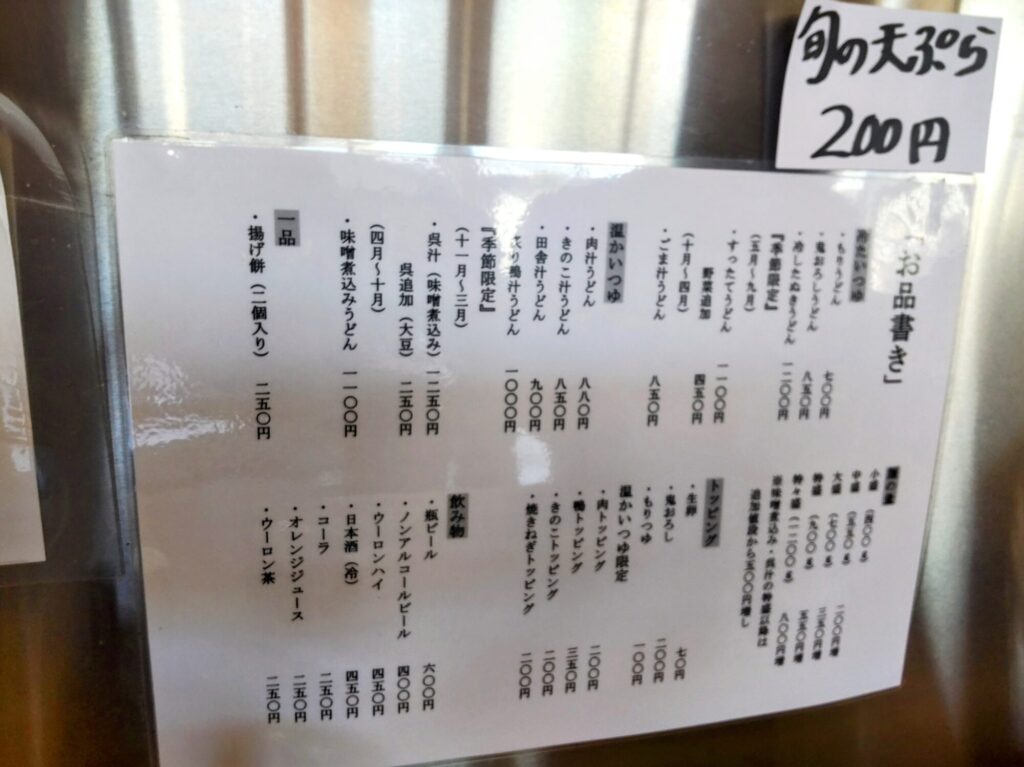 旬の天ぷら
200円
「お品書き」
冷たいつゆ
・もりうどん 七〇〇円
・鬼おろしうどん 八五〇円
・冷したぬきうどん
『季節限定』
（五月～九月）
・すったてうどん 一一〇〇円
野菜追加 四五〇円
（十月～四月）
・ごま汁うどん 八五〇円
温かいつゆ
・肉汁うどん 八八〇円
・きのこ汁うどん 八五〇円
・田舎汁うどん 九〇〇円
・炙り鴨汁うどん 一〇〇〇円
『季節限定』
（十一月～三月）
・呉汁（味噌煮込み）一二五〇円
呉追加（大豆） 二五〇円
（四月～十月）
・味噌煮込みうどん 一一〇〇円
一品
・揚げ餅（二個入り） 二五〇円
麺の量
小盛（四〇〇ｇ）
中盛（五五〇ｇ） 二〇〇円増
大盛（七〇〇ｇ） 三五〇円増
特盛（九〇〇ｇ） 五五〇円増
特々盛（一二〇〇ｇ） 八〇〇円増
※味噌煮込み・呉汁の特盛以降は
追加値段から五〇〇円増し
トッピング
・生卵 七〇円
・鬼おろし 二〇〇円
・もりつゆ 一〇〇円
温かいつゆ限定
・肉トッピング 二〇〇円
・鴨トッピング 三五〇円
・きのこトッピング 二〇〇円
・焼きねぎトッピング 二〇〇円
飲み物
・瓶ビール 六〇〇円
・ノンアルコールビール 四〇〇円
・ウーロンハイ 四五〇円
・日本酒（冷） 四五〇円
・コーラ 二五〇円
・オレンジジュース 二五〇円
・ウーロン茶 二五〇円